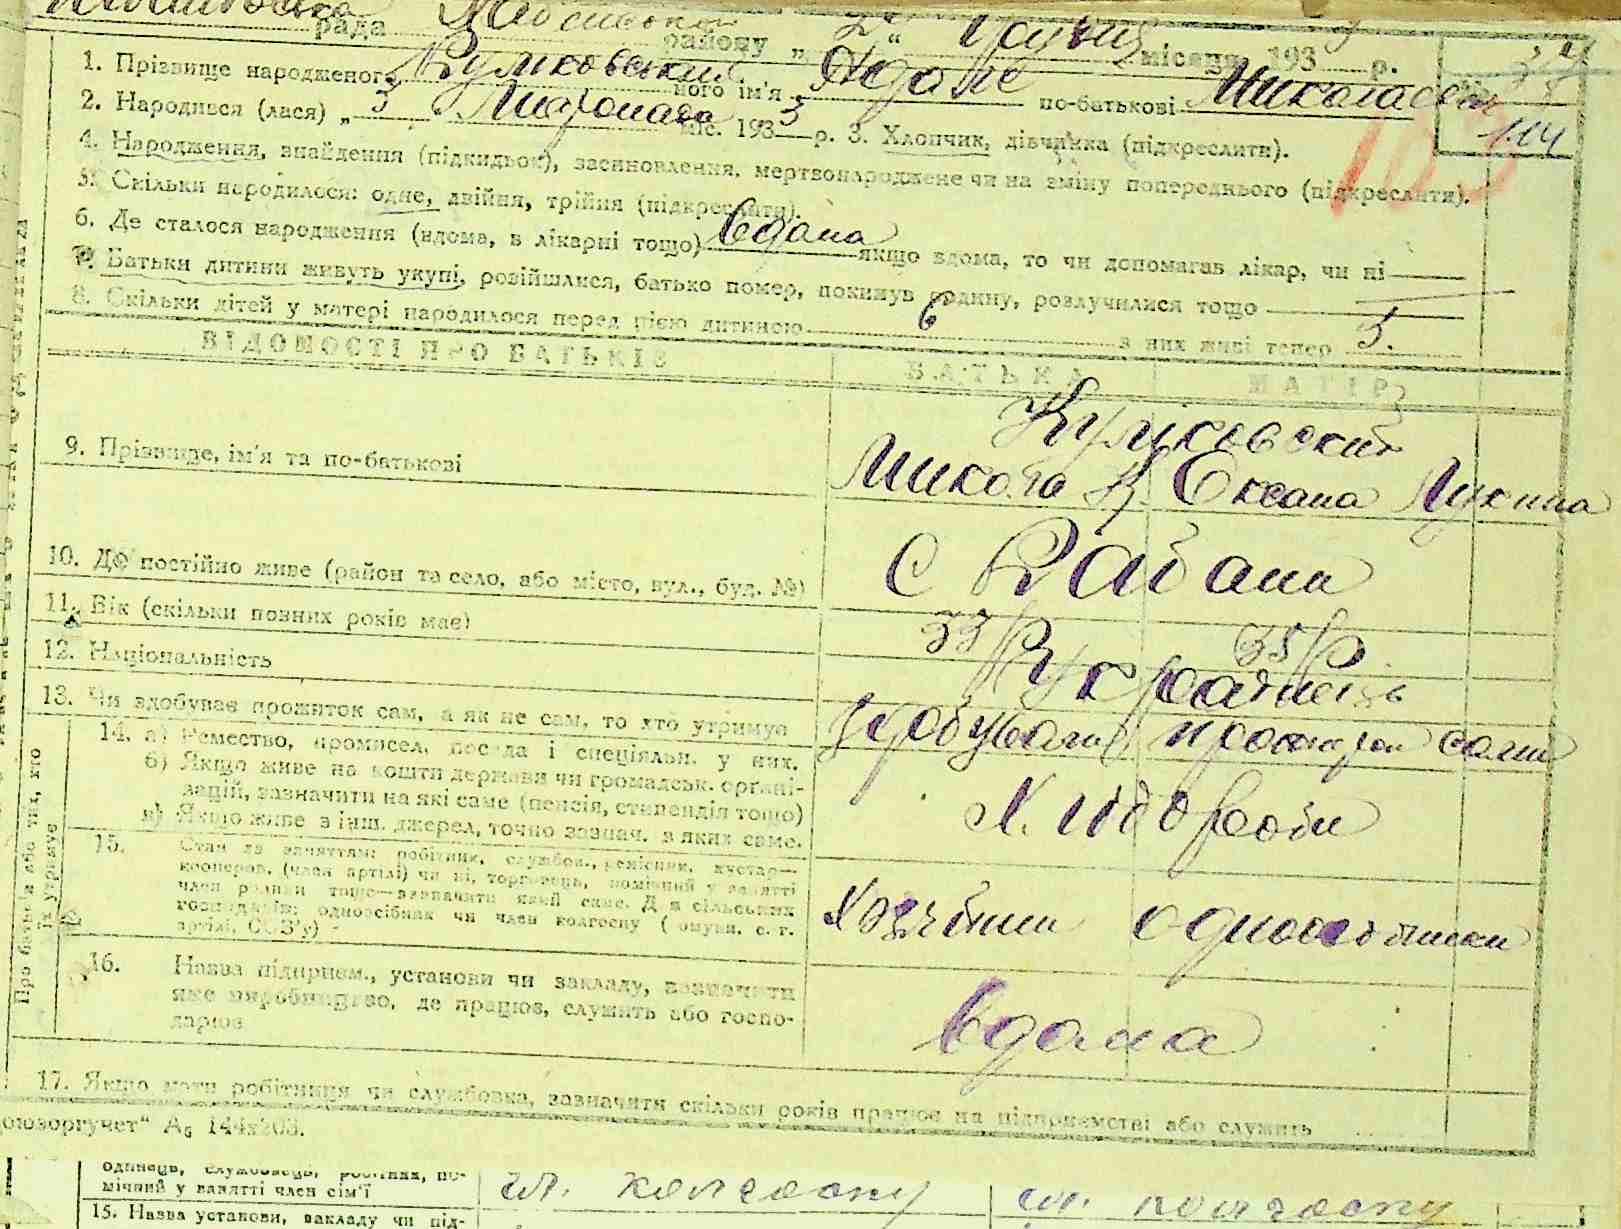 рада района „ 2 “ Грудня місяця 193 3 р.
1. Прізвище народженого Куліковський його ім'я Адам по-батькові Миколаєвич
2. Народився (лася) „ 3 Листопада міс. 193 3 р. 3. Хлопчик, дівчинка (підкреслити).
114
4. Народження, знайдення (підкидьок), засиновлення, мертвонароджене чи на зміну попереднього (підкреслити).
5. Скільки народилося: одне, двійня, трійня (підкреслити).
6. Де сталося народження (вдома, в лікарні тощо) Вдома якщо вдома, то чи допомагав лікар, чи ні
7. Батьки дитини живуть укупі, розійшлися, батько помер, покинув родину, розлучилися тощо
8. Скільки дітей у матері народилося перед цією дитиною 6 з них живі тепер 5.
ВІДОМОСТІ ПРО БАТЬКІВ БАТЬКА МАТІР
9. Прізвище, ім'я та по-батькові Куліковский
Микола К. Оксана Лукина
10. Де постійно живе (район та село, або місто, вул., буд. №) с
11. Вік (скільки повних років має) 33 р 35 р
12. Національність Українець
13. Чи здобуває прожиток сам, а як не сам, то хто утримує сами
Про батьків або тих, хто їх утримує
14. а) Ремество, промисел, посада і спеціяльн. у них.
б) Якщо живе на кошти держави чи громадськ. органі-
зацій, зазначити на які саме (пенсія, стипендія тощо)
в) Якщо живе з інш. джерел, точно зазнач. з яких саме.
Хлібороби
15. Стан за заняттям: робітник, службов., ремісник, кустар—
кооперов. (член артілі) чи ні, торговець, помічний у занятті
член родини тощо—зазначити який саме. Для сільських
господарів: одноосібник чи член колгоспу (комуни, с. г.
артілі, СОЗ'у)
одноосібники
16. Назва підприєм., установи чи закладу, зазначити
яке виробництво, де працює, служить або госпо-
дарює
Вдома
17. Якщо мати робітниця чи службовка, зазначити скільки років працює на підприємстві або служить
оюзоргучет“ А₆ 144х203.
одинець, службовець, робітник, по-
мічний у занятті член сім'ї чл. колгоспу чл. колгоспу
15. Назва установи, закладу чи під-